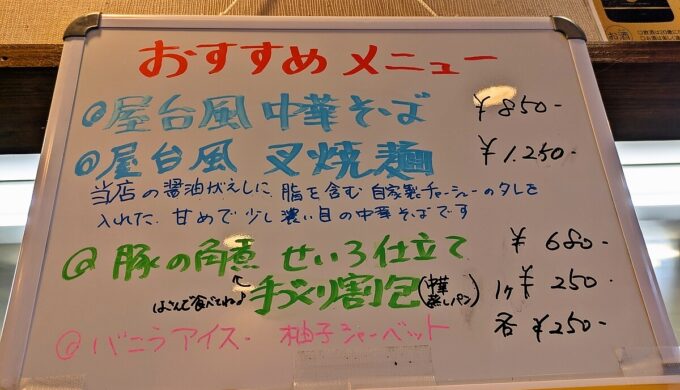 おすすめメニュー
@屋台風 中華そば ¥850-
@屋台風 叉焼麺 ¥1,250-
当店の醤油状えしに、脂を含む自家製チャーシューのタレを
入れた、甘めで少し濃い目の中華そばです
@豚の角煮 せいろ仕立て ¥680-
はさんで食べてね♪ 手づくり割包(中華蒸しパン) 1ヶ¥250-
@バニラアイス・柚子シャーベット 各¥250-